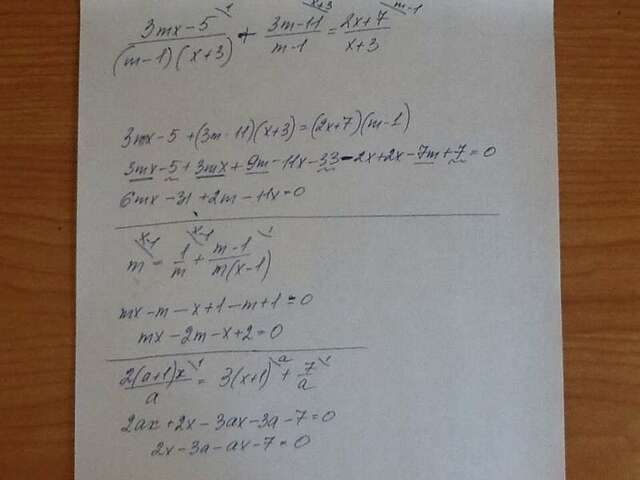 (3mx-5)/((m-1)(x+3)) \1 + (3m-11)/(m-1) \x+3 = (2x+7)/(x+3) \m-1
3mx-5+(3m-11)(x+3)=(2x+7)(m-1)
3mx-5+3mx+9m-11x-33-2x+2x-7m+7=0
6mx-31+2m-11x=0
m \x-1 = 1/m \x-1 + (m-1)/(m(x-1)) \1
mx-m-x+1-m+1=0
mx-2m-x+2=0
2(a+1)x/a \1 = 3(x+1) \a + 7/a \1
2ax+2x-3ax-3a-7=0
2x-3a-ax-7=0